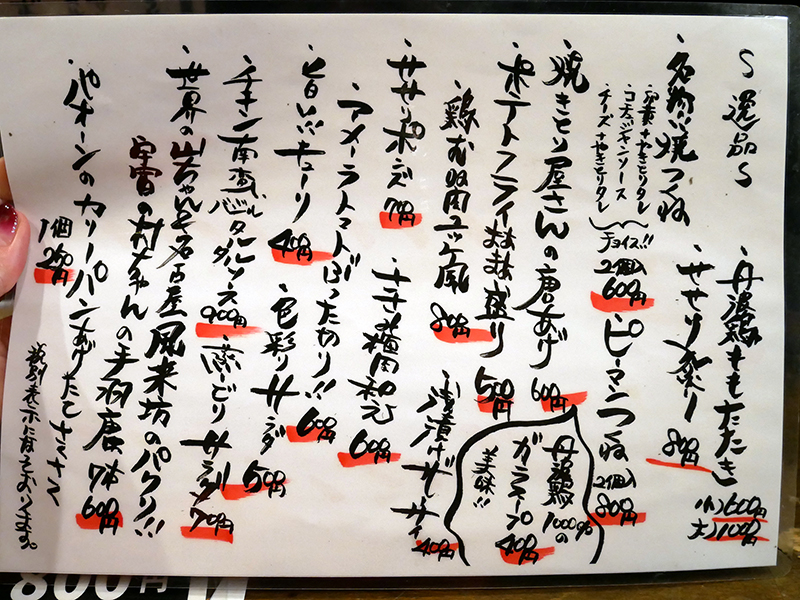 逸品
丹波鶏ももたたき
(小)600円
(大)1000円
名物!!焼つくね
卵黄+やきとりタレ
コチュジャンソース
チーズ+やきとりタレ
チョイス!!
2個入
600円
せせり炙り
800円
ピーマンつくね
2個入
800円
焼きとり屋さんの唐あげ
600円
ポテトフライまぁまぁ盛り
500円
丹波鶏
100%の
ガラスープ
400円
美味!!
鶏むね肉ユッケ風
800円
浅漬けザーサイ
400円
ササミポンズ
700円
600円
アメーラトマトぶった切り!!
600円
旨い!!キューリ
400円
色彩りサラダ
500円
チキン南蛮
タルタルソース
900円
蒸しどりサラダ
700円
世界の山ちゃんと名古屋風来坊のパクリ!!
宇宙の村ちゃんの手羽唐
7本
600円
パオーンのカリーパンあげたてさくさく
1個
250円
税別表示になっております。
800円